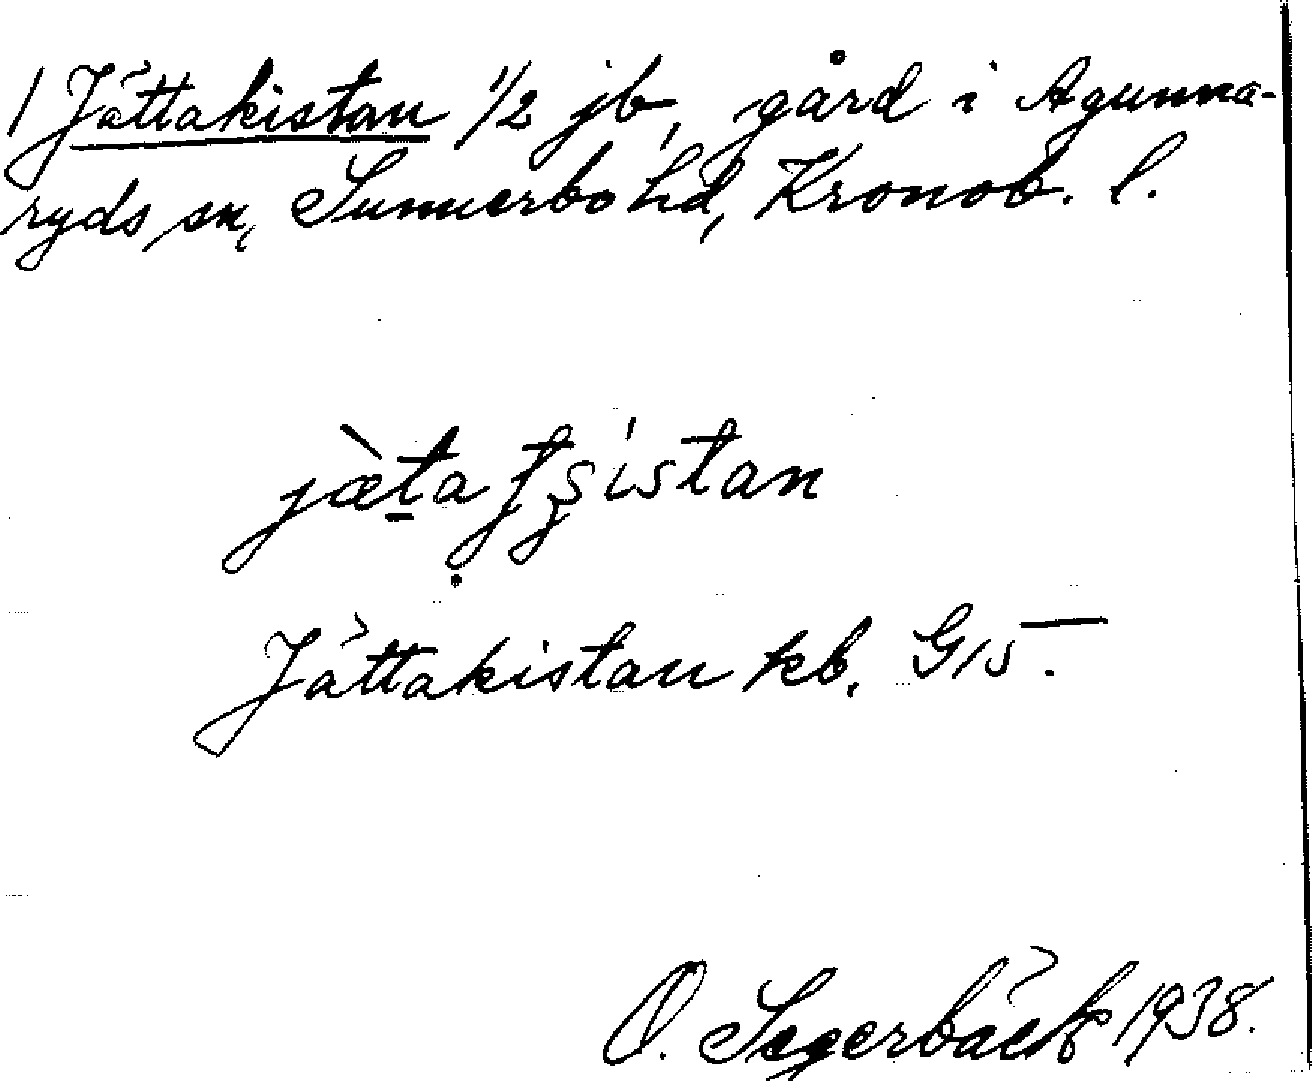 1 Jättakistan 1/2 jb, gård i Agunna-
ryds sn, Sunnerbo hd, Kronob. l.
jæ̀ta tʂístan
Jättakistan kb. G15.
O. Segerbäck 1938.